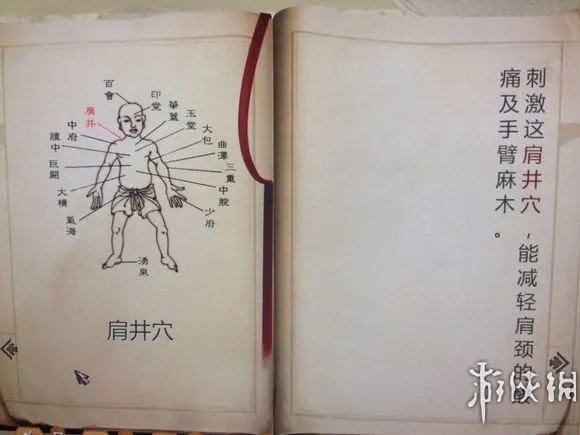 百會
印堂
華蓋
玉堂
大包
曲澤
三重
中脘
少府
肩井
中府
膻中
巨闕
大橫
氣海
湧泉
肩井穴
刺激这肩井穴，能减轻肩颈的酸
痛及手臂麻木。
游侠网